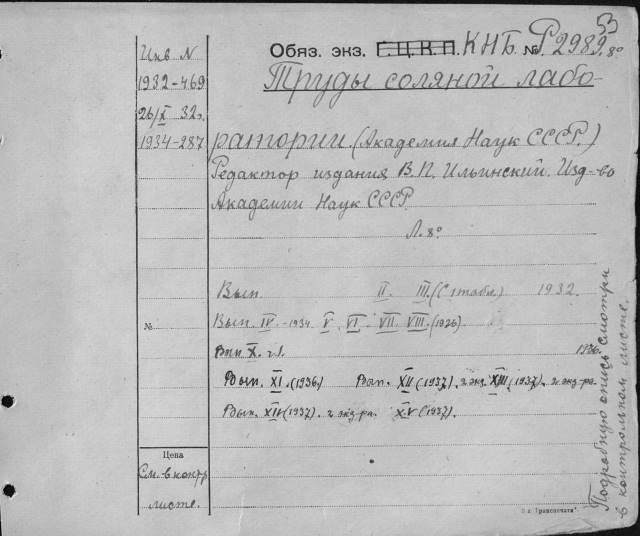 53
Обяз. экз. Г.Ц.К.П. КНБ. № Р2989. 8°
Инв N
1932-469
26/X 32г.
1934-287
Труды соляной лабо-
ратории. (Академия Наук СССР.)
Редактор издания В.П. Ильинский. Изд-во
Академии Наук СССР
Л. 8°
Вып. II. III. (С 1 табл.) 1932.
№
Вып. IV. -1934 V. VI. VII. VIII. (1926)
Вып X. ч.1. 1936.
Вып. XI. (1936) Вып. XII (1937). 2 экз. XIII (1937). 2 экз-ра.
Вып. XIV (1937). 2 экз-ра. XV (1937).
Цена
См. в контр
листе.
Подробную опись смотри
в контрольном листе.